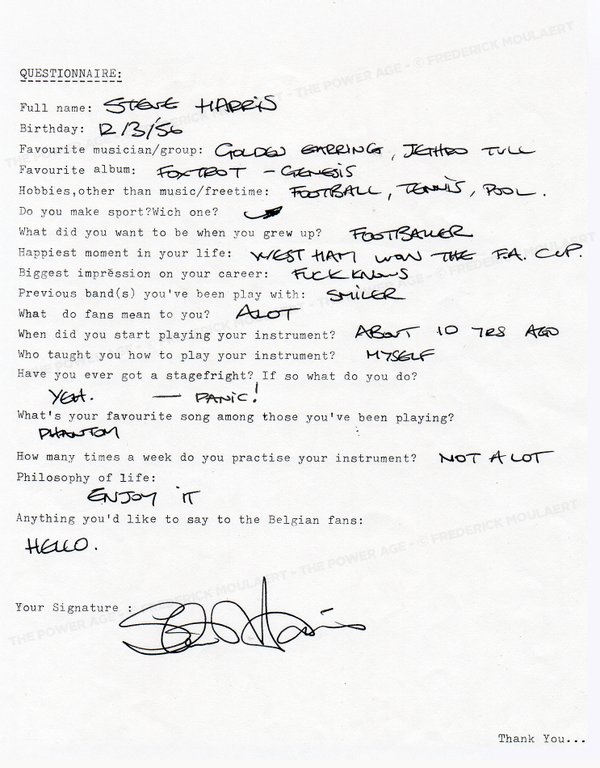 QUESTIONNAIRE:
Full name: STEVE HARRIS
Birthday: 12/3/56
Favourite musician/group: GOLDEN EARRING, JETHRO TULL
Favourite album: FOXTROT - GENESIS
Hobbies,other than music/freetime: FOOTBALL, TENNIS, POOL.
Do you make sport?Wich one?
What did you want to be when you grew up? FOOTBALLER
Happiest moment in your life: WEST HAM WON THE F.A. CUP.
Biggest impression on your career: FUCK KNOWS
Previous band(s) you've been play with: SMILER
What do fans mean to you? ALOT
When did you start playing your instrument? ABOUT 10 YRS AGO
Who taught you how to play your instrument? MYSELF
Have you ever got a stagefright? If so what do you do?
YEH. — PANIC!
What's your favourite song among those you've been playing?
PHANTOM
How many times a week do you practise your instrument? NOT A LOT
Philosophy of life:
ENJOY IT
Anything you'd like to say to the Belgian fans:
HELLO.
Your Signature : Steve Harris
Thank You...
THE POWER AGE - © FREDERICK MOULAERT